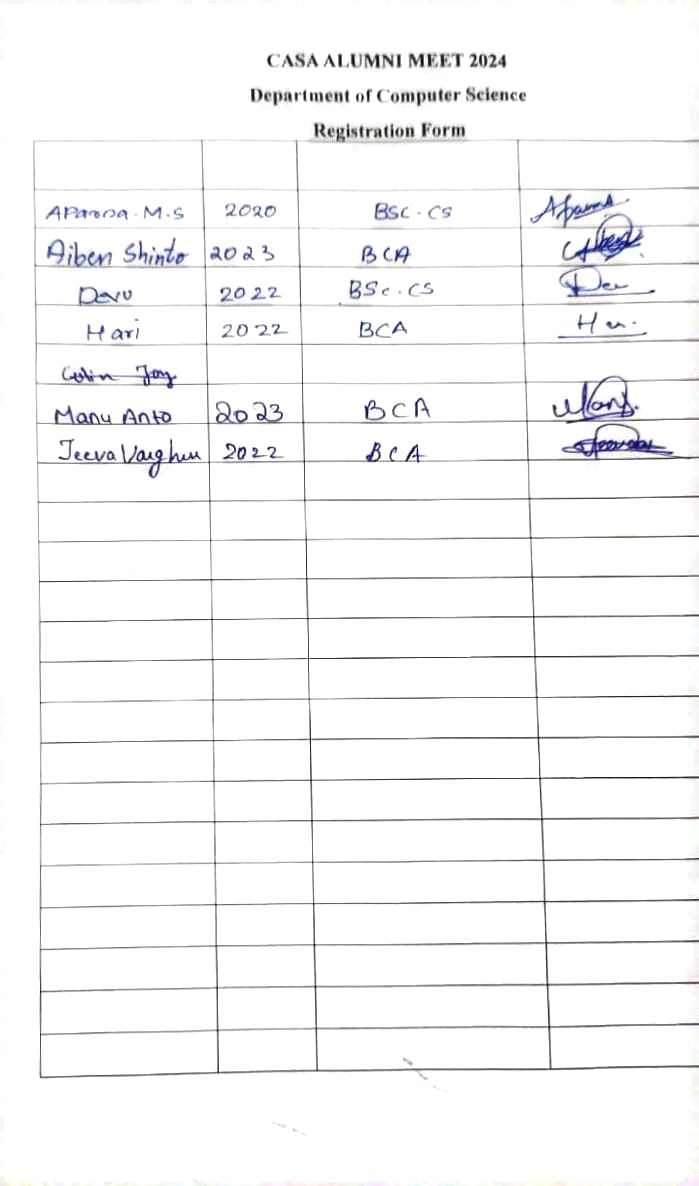 CASA ALUMNI MEET 2024
Department of Computer Science
Registration Form
Aparna.M.S 2020 BSC.CS Aparna
Aiben Shinto 2023 BCA
Devu 2022 BSc.CS Dev
Hari 2022 BCA
Colin Joy
Manu Anto 2023 BCA
Jeeva 2022 BCA